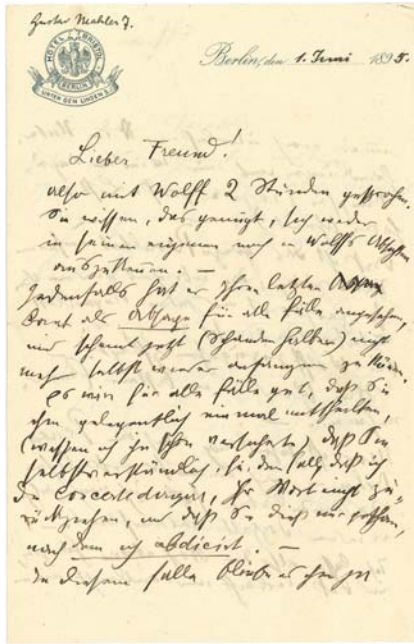 Gustav Mahler
HOTEL BRISTOL
BERLIN
UNTER DEN LINDEN 5.
Berlin, den 1. Juni 1895.
Lieber Freund!
also mit Wolff 2 Stunden gesprochen.
Sie wissen, das genügt, sich weder
in seinen eigenen noch in Wolffs Absichten
auszukennen. —
Jedenfalls hat er Ihren letzten
als Absage für alle Fälle angesehen,
und scheint jetzt (Schanden halber) nicht
mehr selbst wieder anfangen zu können.
Es wäre für alle Fälle gut, daß Sie
ihm gelegentlich einmal mittheilten,
(wessen ich ihn schon versicherte) daß Sie
selbstverständlich, für den Fall daß ich
die Concerte dirigire, Ihr Wort nicht zu-
rückziehen, und daß Sie dieß nur gethan,
nachdem ich abdicirt. —
In diesem Falle bliebe es ihm ja